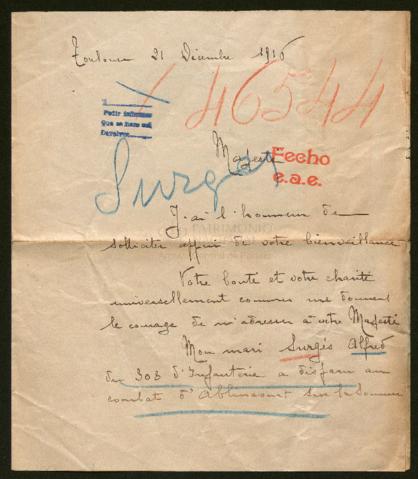 Toulouse 21 Décembre 1916
46544
Pedir informes
Que se hace así
Majesté
Fecho
c.a.e.
Surges
J'ai l'honneur de
solliciter appui de votre bienveillance
PATRIMONIO
Votre bonté et votre charité
universellement connues me donnent
le courage de m'adresser à votre Majesté
Mon mari Surgés Alfred
du 303 d'Infanterie a disparu au
combat d'Ablincourt sur la Somme